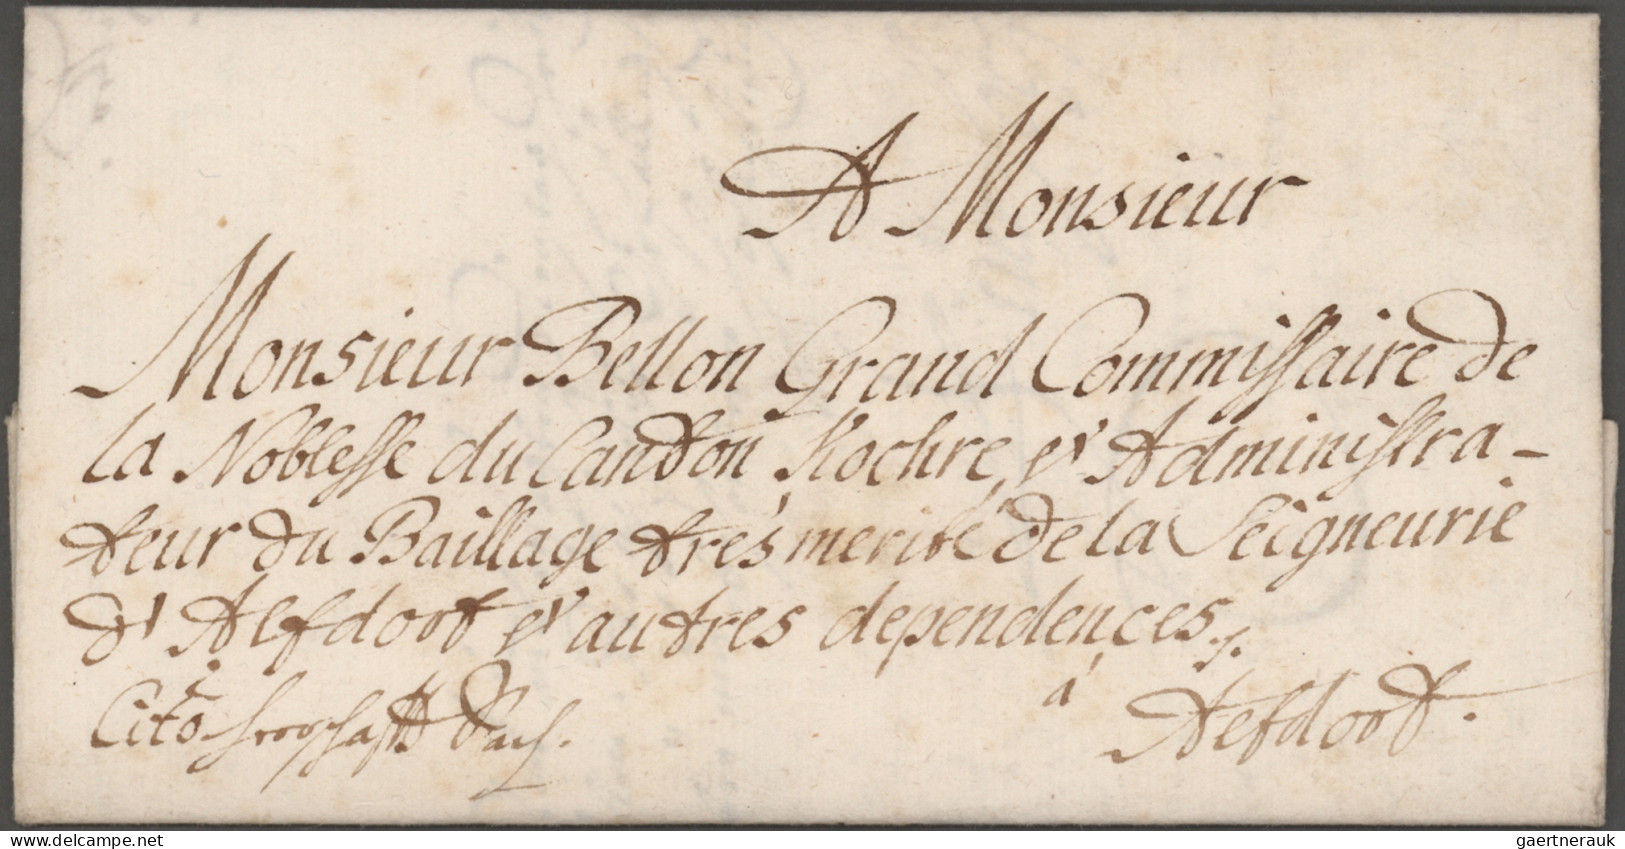 A Monsieur
Monsieur Bellon Grand Commissaire de
la Noblesse du Candon Kochre, et Administra-
teur du Baillage tres merité de la Seigneurie
d' Aefdorf et autres dependences.
à
Cito herrschafft Sach. Aefdorf.
Delcampe.net
gaertnerauk